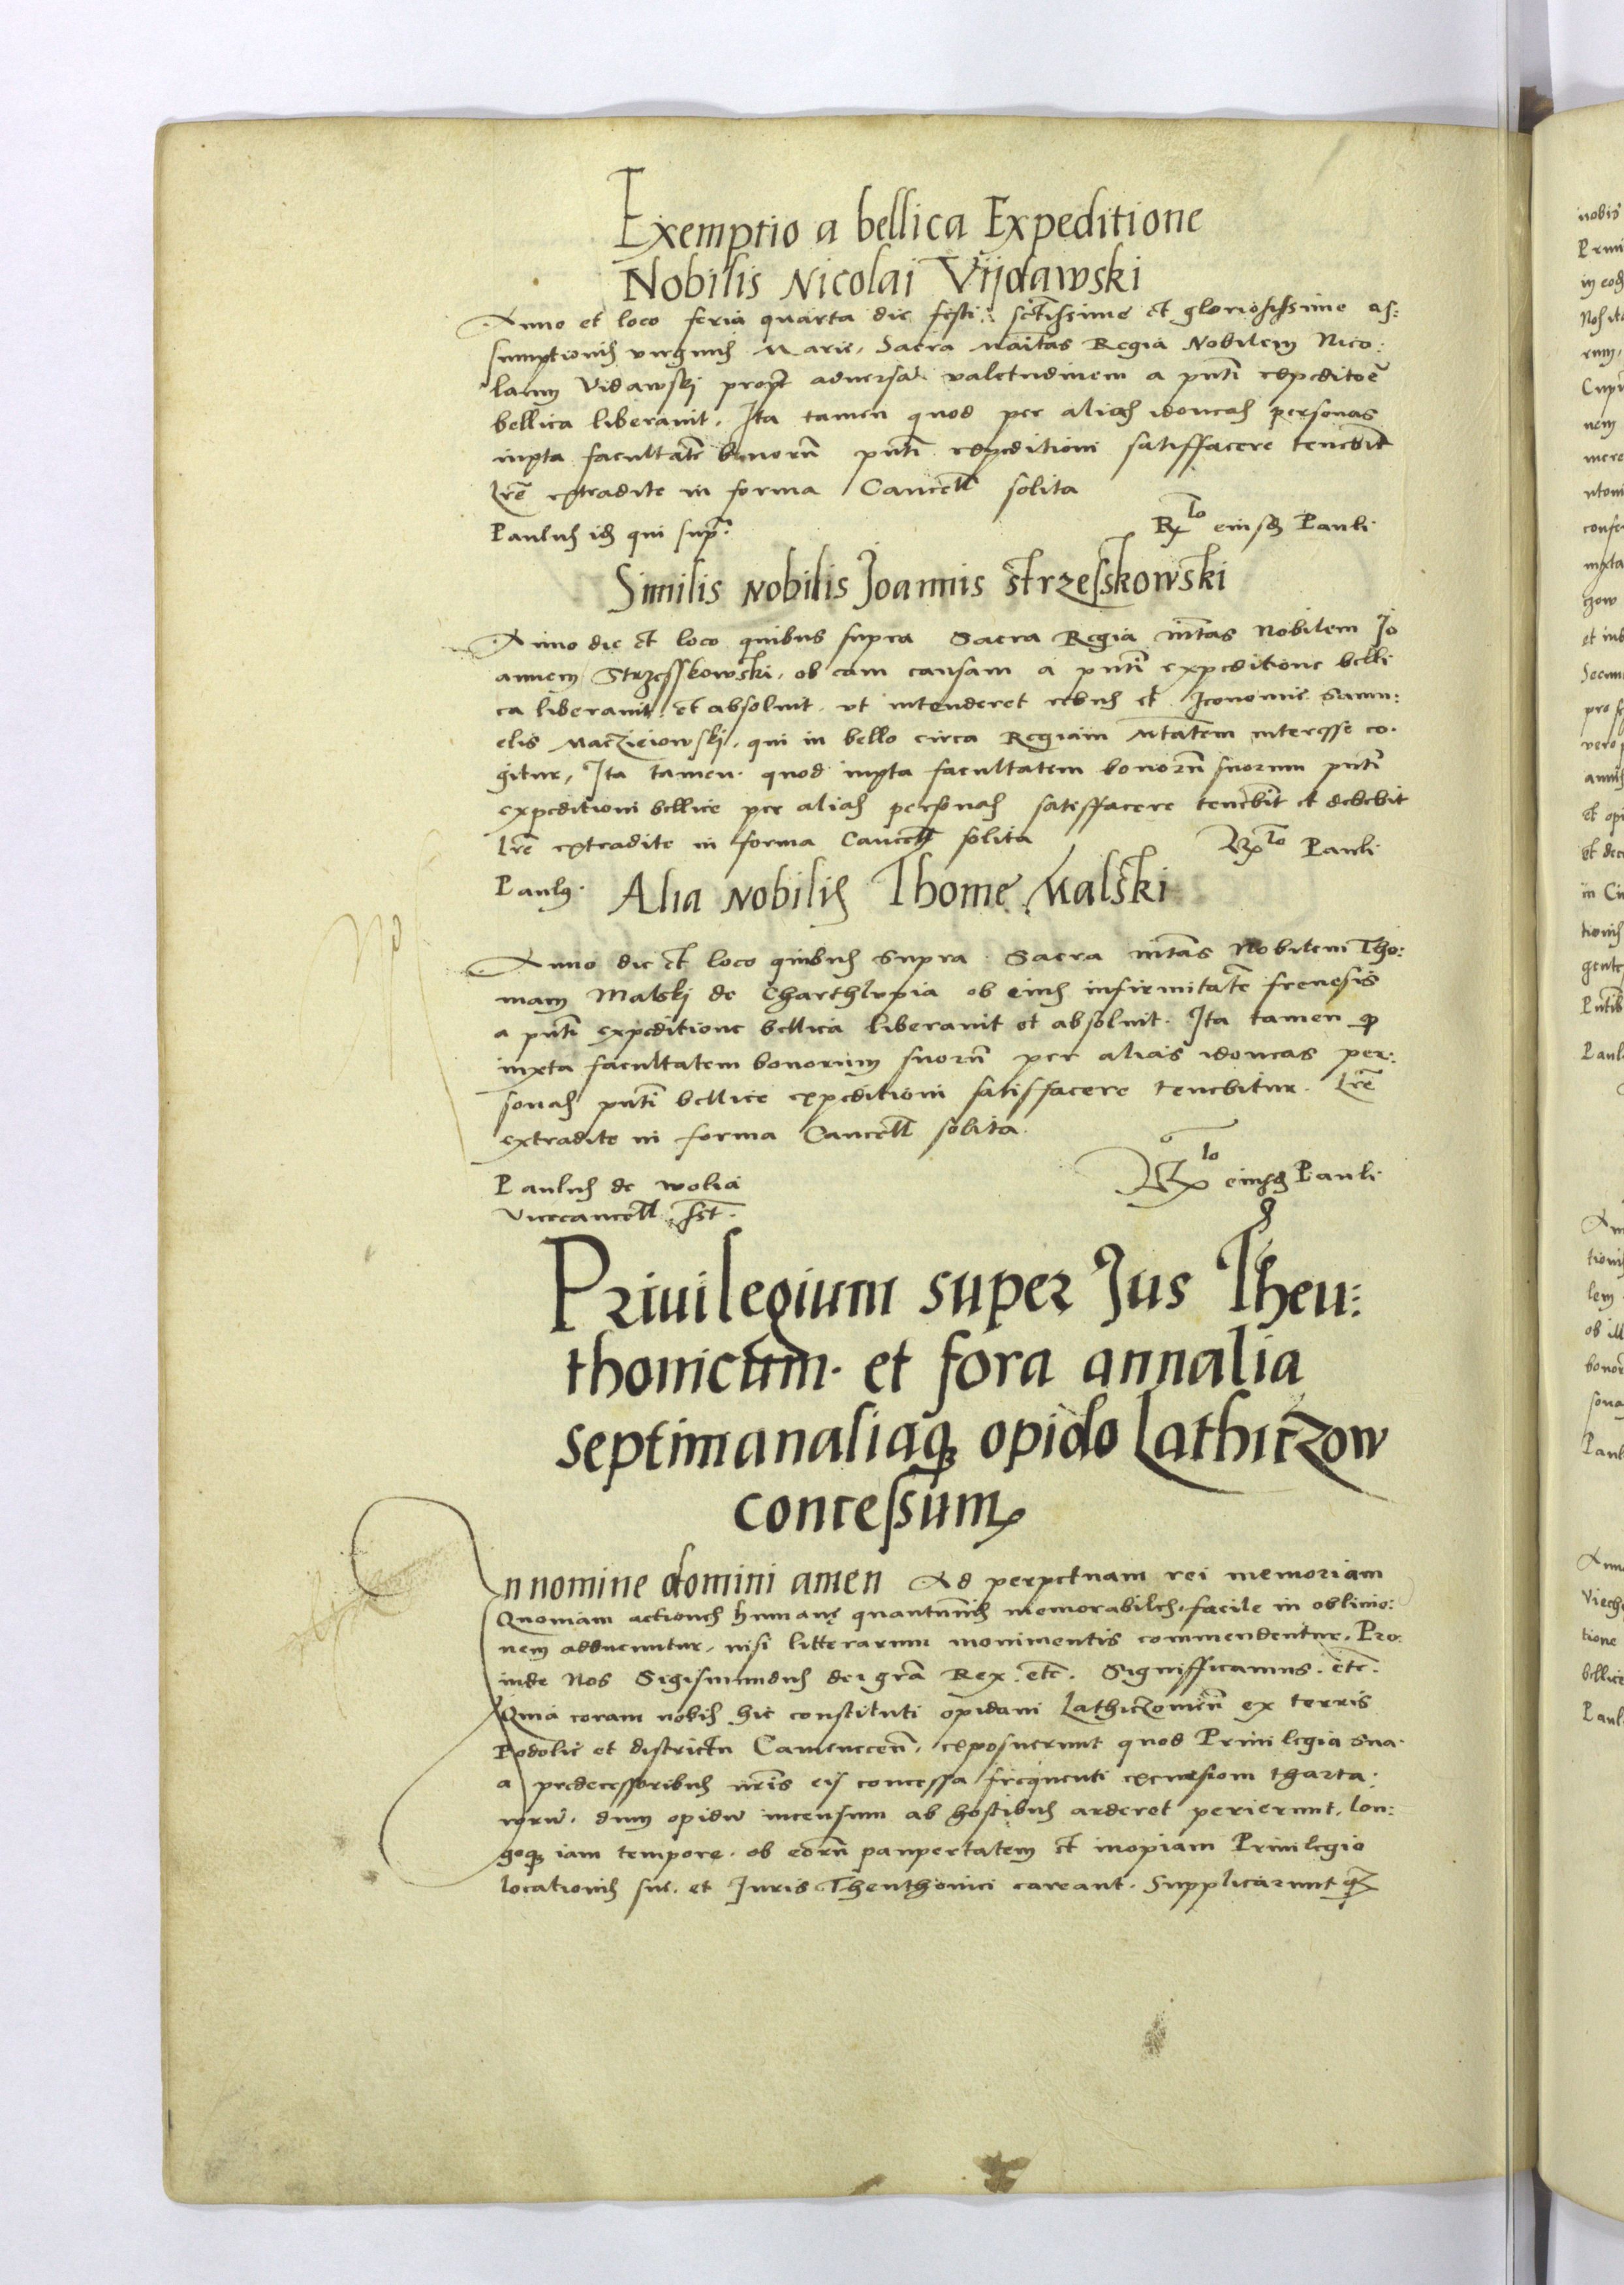 Exemptio a bellica Expeditione
Nobilis Nicolai Vijdawski
Anno et loco feria quarta die festi sctissime et gloriosissime as:
sumptionis virginis Marie, Sacra maitas Regia Nobilem Nico:
laum Vidawskj propt adversā valetudinem a pnti expeditoē
bellica liberauit. Ita tamen quod per alias idoneas personas
iuxta facultatē bonorū pnti expeditioni satisfacere tenebit
Lrē extradite in forma Cancell solita
Paulus idē qui sup. Rlo eiusdē Pauli
Similis Nobilis Joannis Strzesskowski
Anno die et loco quibus supra Sacra Regia mtas Nobilem Jo
annem Strzesskowski, ob eam causam a pnti expeditione belli
ca liberauit et absoluit. vt intenderet rebus et Iconomie Samu:
elis Maczieiowskj, qui in bello circa Regiam Mtatem interesse co.
gitur, Ita tamen quod iuxta facultatem bonorū suorum pnti
expeditioni bellice per alias personas satisfacere tenebit et debebit
Lrē extradite in forma Cancell solita Rlo Pauli
Paulꝰ. Alia Nobilis Thome Malski
Anno die et loco quibus supra Sacra mtas Nobilem Tho:
mam Malskj de Charthlupia ob eius infirmitatē frenesis
a pnti expeditione bellica liberauit et absoluit. Ita tamen ꝙ
iuxta facultatem bonorum suorū per alias idoneas per:
sonas pnti bellice expeditioni satisfacere tenebitur. Lrē
extradite in forma Cancell solita.
Paulus de wolia Rlo eiusdē Pauli
Vicecancell sst.
Priuilegium super Jus Theu:
thonicum. et fora annalia
septimanaliaqꝫ opido Lathiczow
concessum
In nomine domini amen Ad perpetuam rei memoriam
Quoniam actiones humanę quantumuis memorabiles, facile in obliuio:
nem adducuntur, nisi litterarum monimentis commendentur. Pro:
inde Nos Sigismundus dei grā Rex. etc. Significamus. etc.
Quia coram nobis hic constituti opidani Lathiczouien̄ ex terris
Podolie et districtu Camenecen̄, exposuerunt quod Priuilegia sua
a predecessoribus nris eis concessa frequenti excursiom tharta:
rorū, dum opidū incensum ab hostibus arderet perierunt, lon:
goqꝫ iam tempore. ob eorū paupertatem et inopiam Priuilegio
locationis sue. et Juris Theuthonici careant. Supplicarunt qꝫ